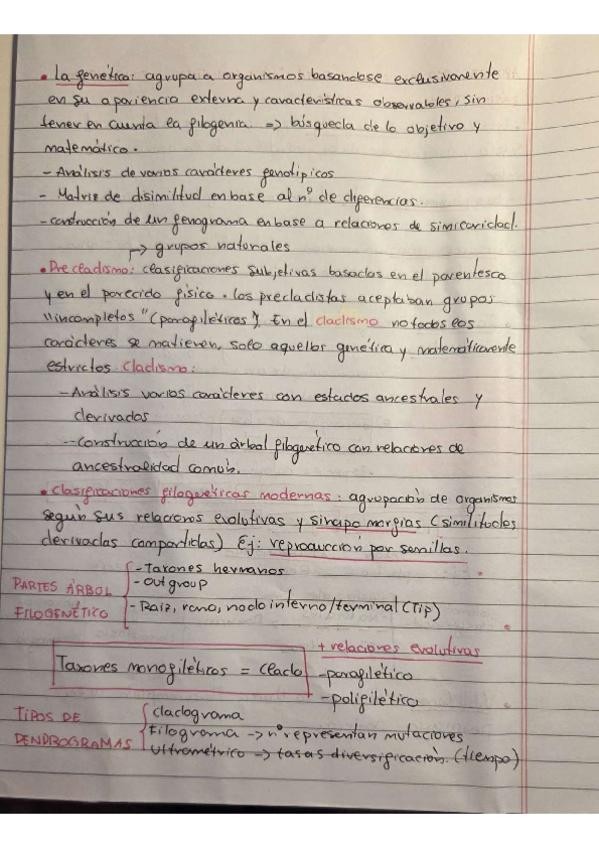 • La fenética: agrupa a organismos basandose exclusivamente
en su apariencia externa y características observables, sin
tener en cuenta la filogenia. => búsqueda de lo objetivo y
matemático.
- Análisis de varios carácteres fenotípicos
- Matriz de disimilitud en base al nº de diferencias.
- construcción de un fenograma en base a relaciones de similaridad.
↱> grupos naturales
• Precladismo: clasificaciones subjetivas basadas en el parentesco
y en el parecido físico. los precladistas aceptaban grupos
"incompletos" (parafiléticos). En el cladismo no todos los
carácteres se mantienen, solo aquellos genética y matemáticamente
estrictos Cladismo:
- Análisis varios carácteres con estados ancestrales y
derivados
- Construcción de un árbol filogenético con relaciones de
ancestralidad común.
• Clasificaciones filogenéticas modernas: agrupación de organismos
según sus relaciones evolutivas y sinapomorfias (similitudes
derivadas compartidas) Ej: reproducción por semillas.
PARTES ÁRBOL FILOGENÉTICO
- Taxones hermanos
- Outgroup
- Raiz, rama, nodo interno/terminal (Tip)
+ relaciones evolutivas
Taxones monofiléticos = clado
- parafilético
- polifilético
TIPOS DE DENDROGRAMAS
cladograma
Filograma -> nº representan mutaciones
Ultramétrico -> tasas diversificación. (tiempo)